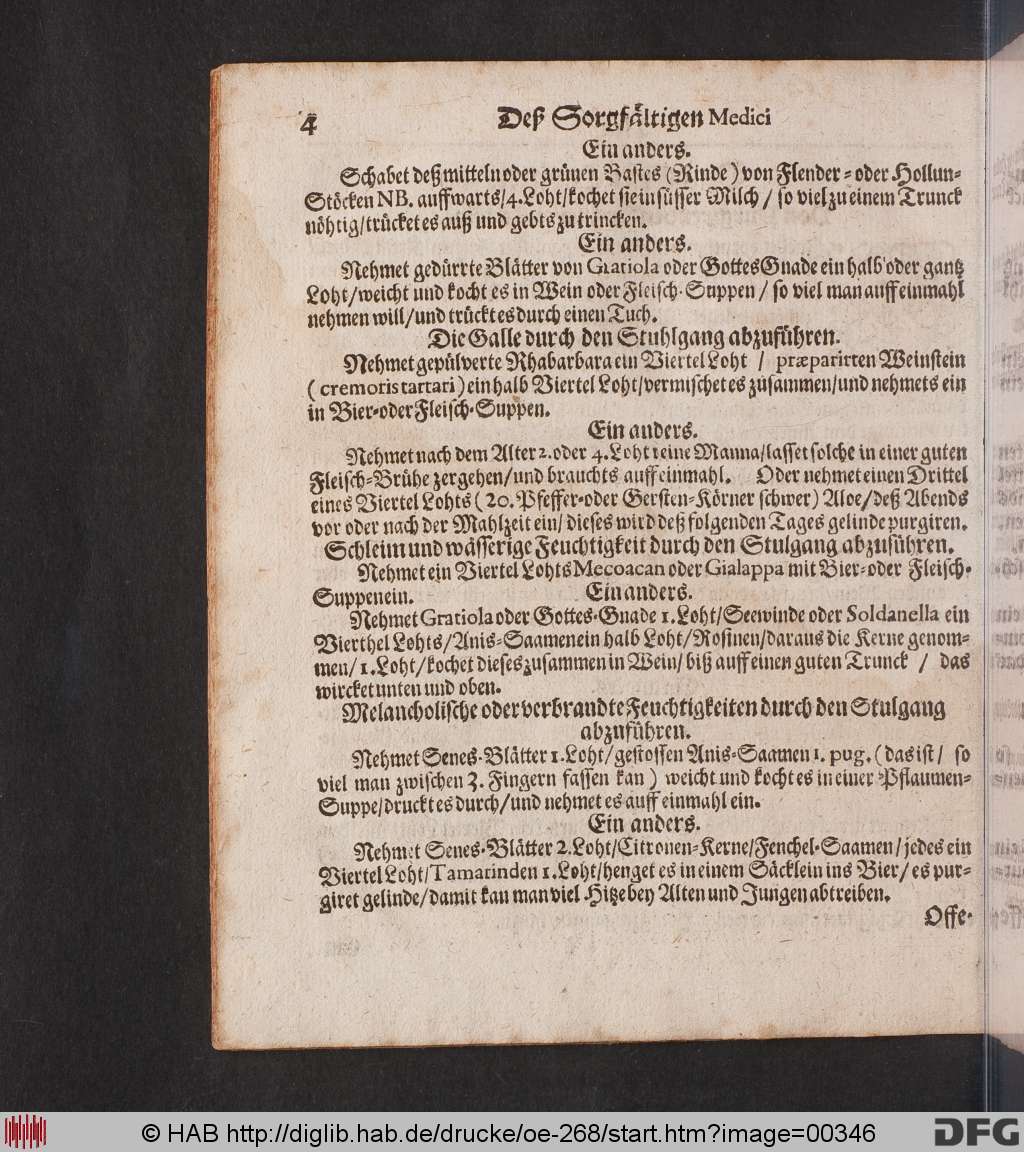 4 Deß Sorgfältigen Medici
Ein anders.
Schabet deß mitteln oder grünen Bastes (Rinde) von Flender- oder Hollun-
Stöcken NB. auffwarts/4. Loht/kochet sie in süsser Milch / so viel zu einem Trunck
nöhtig/trücket es auß und gebts zu trincken.
Ein anders.
Nehmet gedürrte Blätter von Gratiola oder Gottes Gnade ein halb oder gantz
Loht/weicht und kocht es in Wein oder Fleisch-Suppen / so viel man auff einmahl
nehmen will/und trückt es durch einen Tuch.
Die Galle durch den Stuhlgang abzuführen.
Nehmet gepülverte Rhabarbara ein Viertel Loht / præparirten Weinstein
(cremoris tartari) ein halb Viertel Loht/vermischet es zusammen/und nehmets ein
in Bier-oder Fleisch-Suppen.
Ein anders.
Nehmet nach dem Alter 2. oder 4. Loht reine Manna/lasset solche in einer guten
Fleisch-Brühe zergehen/und brauchts auff einmahl. Oder nehmet einen Drittel
eines Viertel Lohts (20. Pfeffer-oder Gersten-Körner schwer) Aloe/deß Abends
vor oder nach der Mahlzeit ein/ dieses wird deß folgenden Tages gelinde purgiren.
Schleim und wässerige Feuchtigkeit durch den Stulgang abzuführen.
Nehmet ein Viertel Lohts Mecoacan oder Gialappa mit Bier-oder Fleisch-
Suppen ein. Ein anders.
Nehmet Gratiola oder Gottes-Gnade 1. Loht/Seewinde oder Soldanella ein
Vierthel Lohts/Anis-Saamen ein halb Loht/Rosinen/daraus die Kerne genom-
men/1. Loht/kochet dieses zusammen in Wein/biß auff einen guten Trunck / das
wircket unten und oben.
Melancholische oder verbrandte Feuchtigkeiten durch den Stulgang
abzuführen.
Nehmet Senes-Blätter 1. Loht/gestossen Anis-Saamen 1. pug. (das ist/ so
viel man zwischen 3. Fingern fassen kan) weicht und kocht es in einer Pflaumen-
Suppe/druckt es durch/und nehmet es auff einmahl ein.
Ein anders.
Nehmet Senes-Blätter 2. Loht/Citronen-Kerne/Fenchel-Saamen/jedes ein
Viertel Loht/Tamarinden 1. Loht/henget es in einem Säcklein ins Bier/es pur-
giret gelinde/damit kan man viel Hitze bey Alten und Jungen abtreiben.
Offe-
© HAB http://diglib.hab.de/drucke/oe-268/start.htm?image=00346
DFG